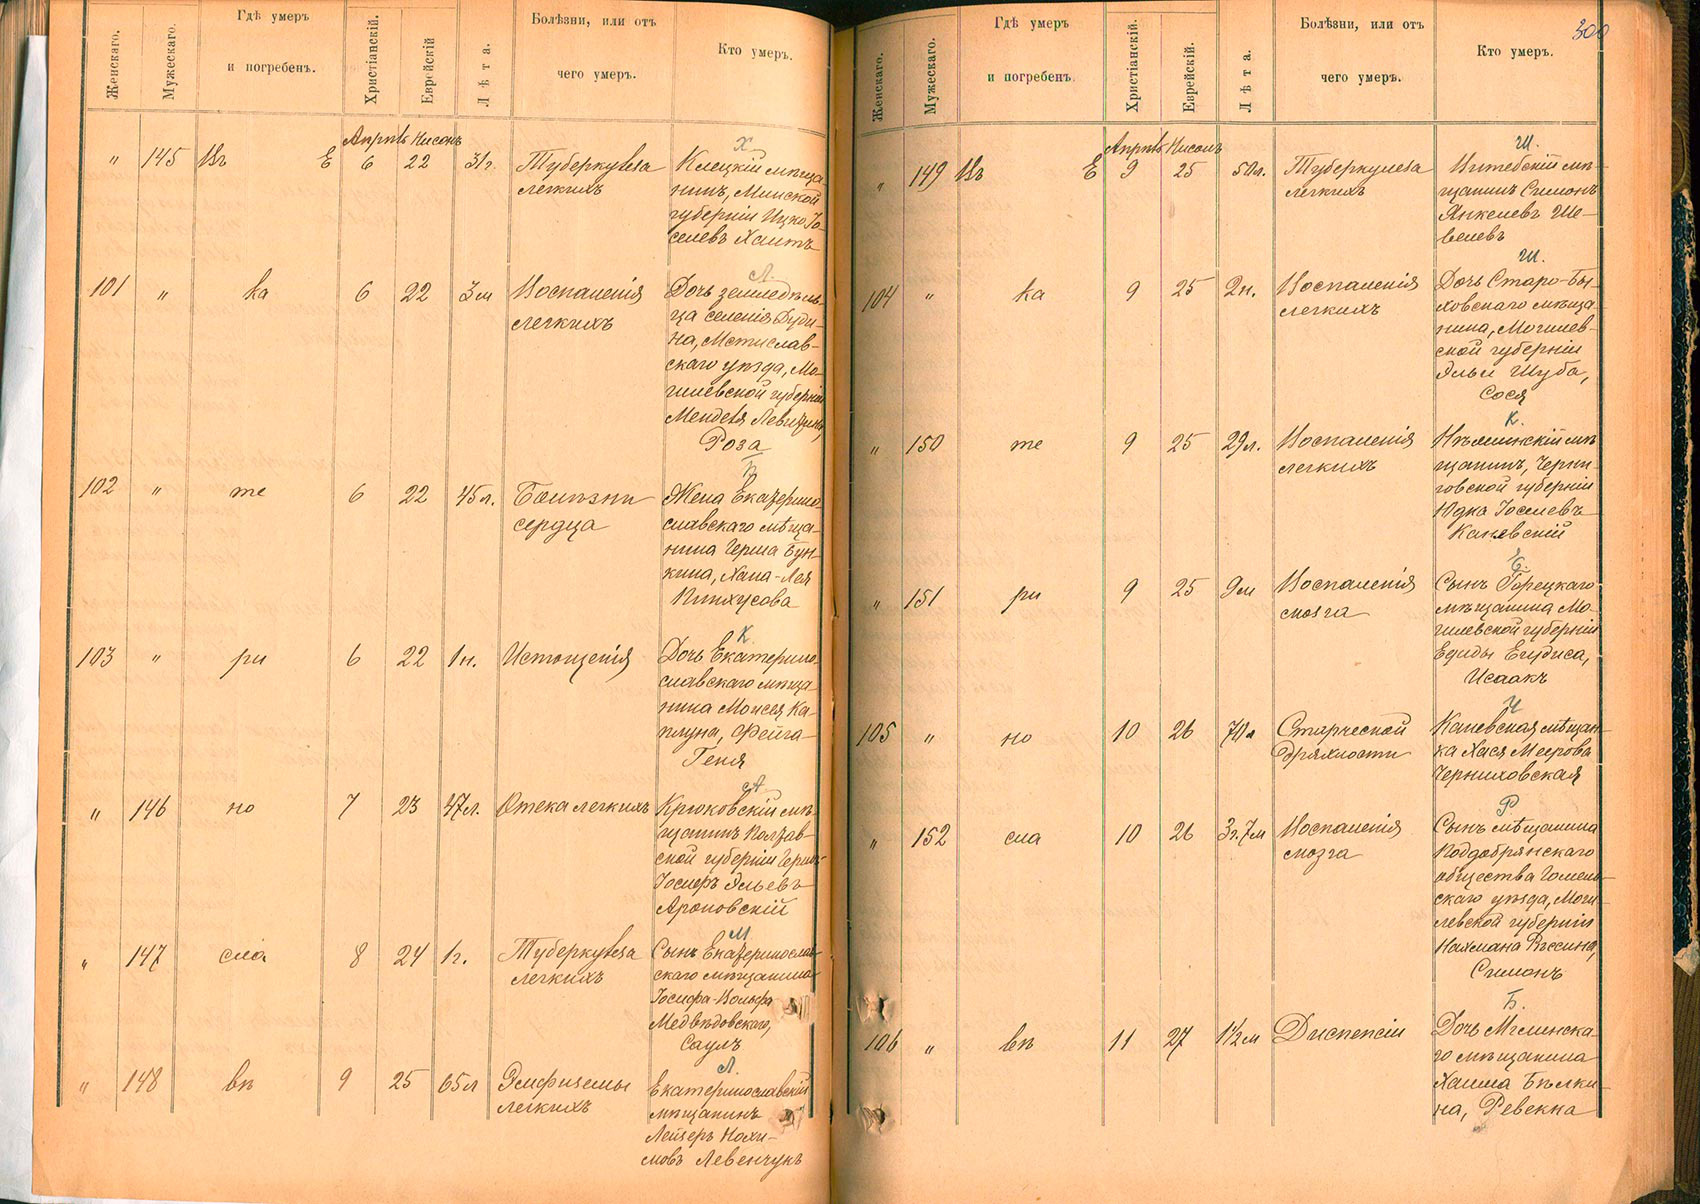 Женскаго.
Мужескаго.
Гдѣ умеръ
и погребенъ.
Христіанскій.
Еврейскій
Лѣта.
Болѣзни, или отъ
чего умеръ.
Кто умеръ.
Апрѣль Нисонъ
Х
" 145 Въ Е 6 22 31г. Туберкулеза
легкихъ
Клецкій мѣща
нинъ, Минской
губерніи Ицко Іо-
селевъ Хаитъ
Л.
101 " ка 6 22 3м Воспаленія
легкихъ
Дочь земледѣль
ца селенія Дуди-
на, Мстислав-
скаго уѣзда, Мо-
гилевской губерніи
Менделя
Роза
Б
102 " те 6 22 45л. Болѣзни
сердца
Жена Екатерино-
славскаго мѣща-
нина Герша Бун-
кина, Хана-Лея
Пинхусова
К
103 " ри 6 22 1н. Истощенія
Дочь Екатерино-
славскаго мѣща-
нина Моисея Ка-
плуна, Фейга
Геня
А
" 146 но 7 23 47л. Отека легкихъ
Крюковскій мѣ-
щанинъ Полтав-
ской губерніи
Іосифъ Эльевъ
Ароновскій
М
" 147 сла 8 24 1г. Туберкулеза
легкихъ
Сынъ Екатеринослав-
скаго мѣщанина
Іосифа-Вольфа
Медвѣдовскаго,
Саулъ
Л.
" 148 вѣ 9 25 65л Эмфиземы
легкихъ
Екатеринославскій
мѣщанинъ
Лейзеръ Нохи-
мовъ Левенчукъ
300
Женскаго.
Мужескаго.
Гдѣ умеръ
и погребенъ.
Христіанскій.
Еврейскій.
Лѣта.
Болѣзни, или отъ
чего умеръ.
Кто умеръ.
Апрѣль Нисонъ
Ш.
" 149 Въ Е 9 25 50л. Туберкулеза
легкихъ
Витебскій мѣ-
щанинъ Симонъ
Янкелевъ Ше-
велевъ
Ш.
104 " ка 9 25 2н. Воспаленія
легкихъ
Дочь Старо-Бы-
ховскаго мѣща-
нина, Могилев-
ской губерніи
Эльи Шуба,
Сося
К.
" 150 те 9 25 29л. Воспаленія
легкихъ
мѣ
щанинъ, Черни-
говской губерніи
Юдка Іоселевъ
Каневскій
Е.
" 151 ри 9 25 9м Воспаленія
мозга
Сынъ Горецкаго
мѣщанина Мо-
гилевской губерніи
Егудиса,
Исаакъ
Ч
105 " но 10 26 70л Старческой
дряхлости
Каневская мѣщан-
ка Хася Меерова
Черниховская
Р
" 152 сла 10 26 3г.7м Воспаленія
мозга
Сынъ мѣщанина
Поддобрянскаго
общества Гомель-
скаго уѣзда, Моги-
левской губерніи
Нахмана
Симонъ
Б.
106 " вѣ 11 27 1 1/2м Диспепсіи
Дочь Мглинска-
го мѣщанина
Хаима Бѣлки-
на, Ревекка